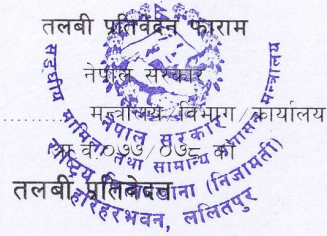 तलबी प्रतिवेदन फाराम
नेपाल सरकार
........ मन्त्रालय/विभाग/कार्यालय
आ.व.०७७/०७८ को
तलबी प्रतिवेदन
सङ्घीय मामिला तथा सामान्य प्रशासन मन्त्रालय
नेपाल सरकार
राष्ट्रिय किताबखाना (निजामती)
हरिहरभवन, ललितपुर